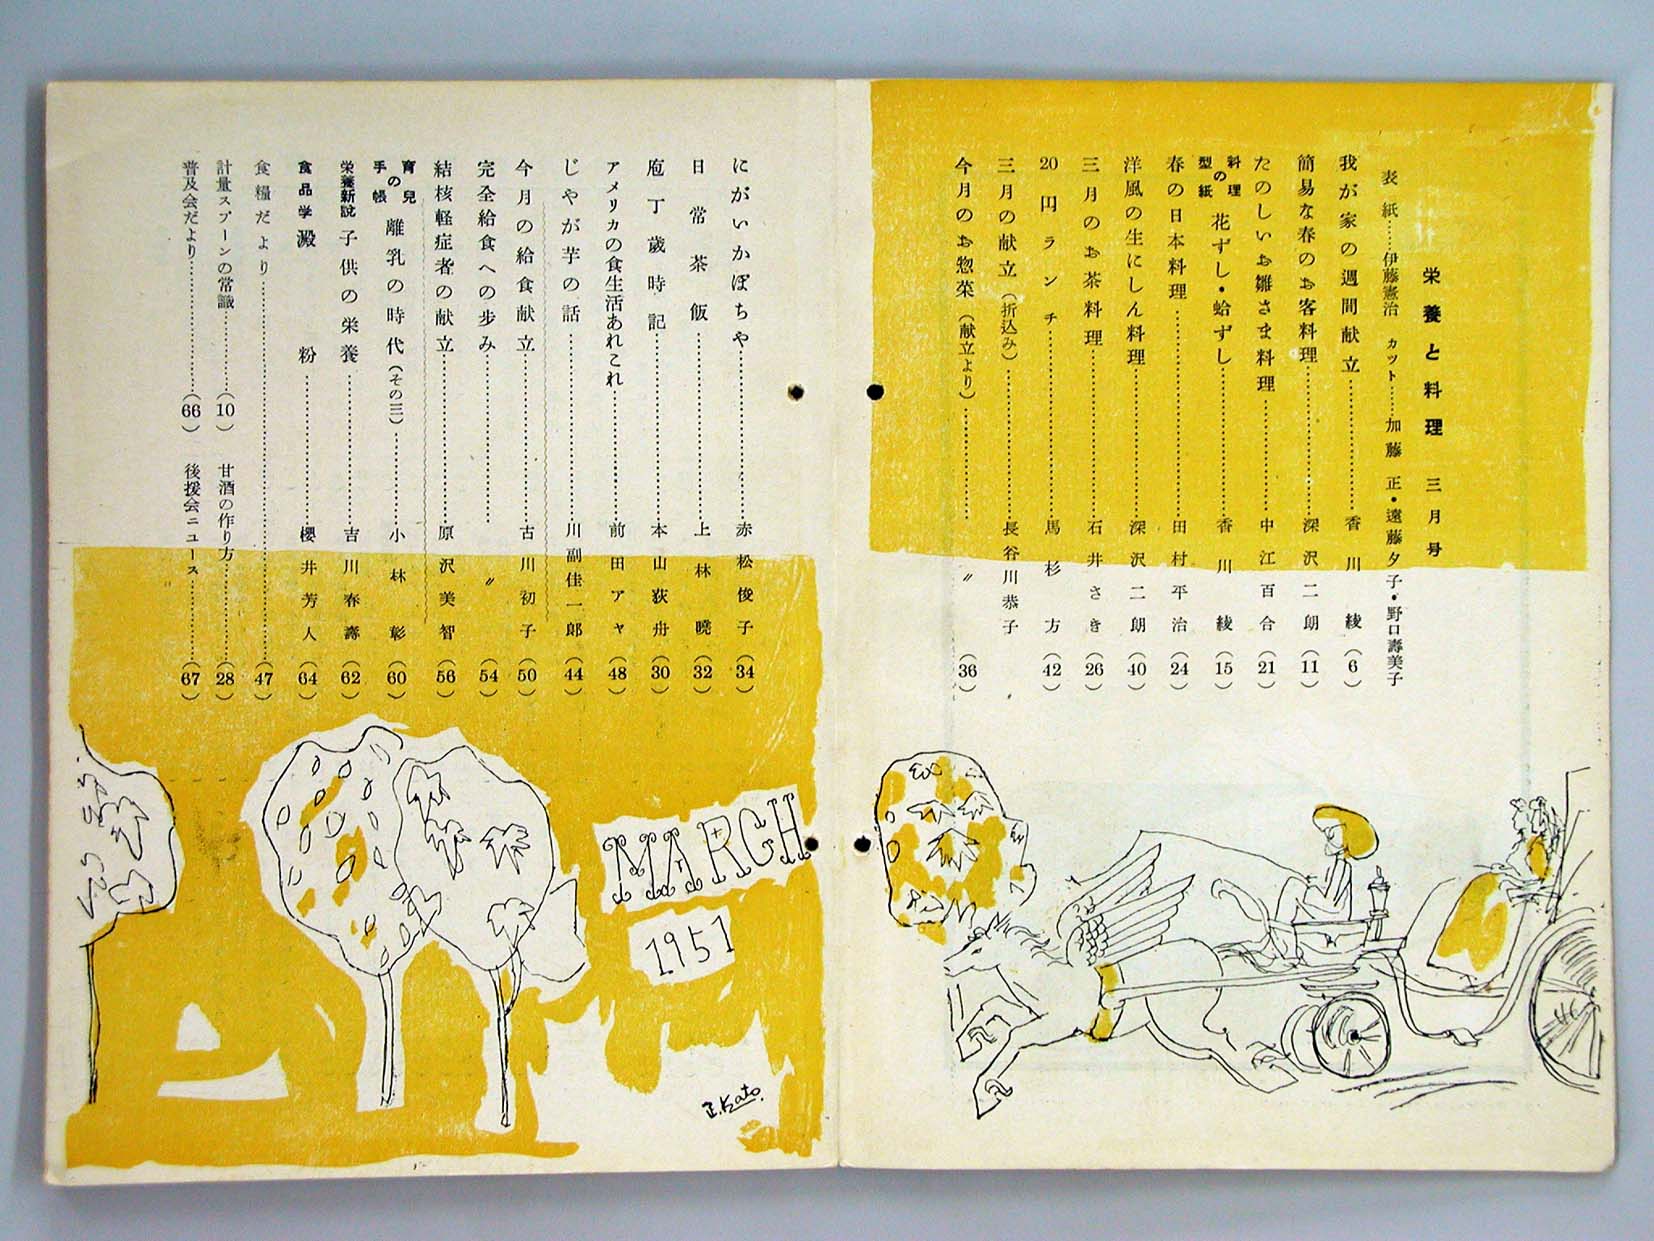 栄養と料理 三月号
表紙……伊藤憲治 カット……加藤 正・遠藤夕子・野口壽美子
我が家の週間献立……香川 綾(6)
簡易な春のお客料理……深沢二朗(11)
たのしいお雛さま料理……中江百合(21)
料理の型紙 花ずし・蛤ずし……香川 綾(15)
春の日本料理……田村平治(24)
洋風の生にしん料理……深沢二朗(40)
三月のお茶料理……石井さき(26)
20円ランチ……馬杉方(42)
三月の献立(折込み)……長谷川恭子
今月のお惣菜(献立より)……〃(36)
にがいかぼちゃ……赤松俊子(34)
日常茶飯……上林 暁(32)
庖丁歳時記……本山荻舟(30)
アメリカの食生活あれこれ……前田アヤ(48)
じゃが芋の話……川副佳一郎(44)
今月の給食献立……古川初子(50)
完全給食への歩み……〃(54)
結核軽症者の献立……原沢美智(56)
育兒の手帳 離乳の時代(その三)……小林 彰(60)
栄養新説 子供の栄養……吉川春壽(62)
食品学 澱粉……櫻井芳人(64)
食糧だより……(47)
計量スプーンの常識……(10) 甘酒の作り方……(28)
普及会だより……(66) 後援会ニュース……(67)
MARCH
1951
正.Kato.